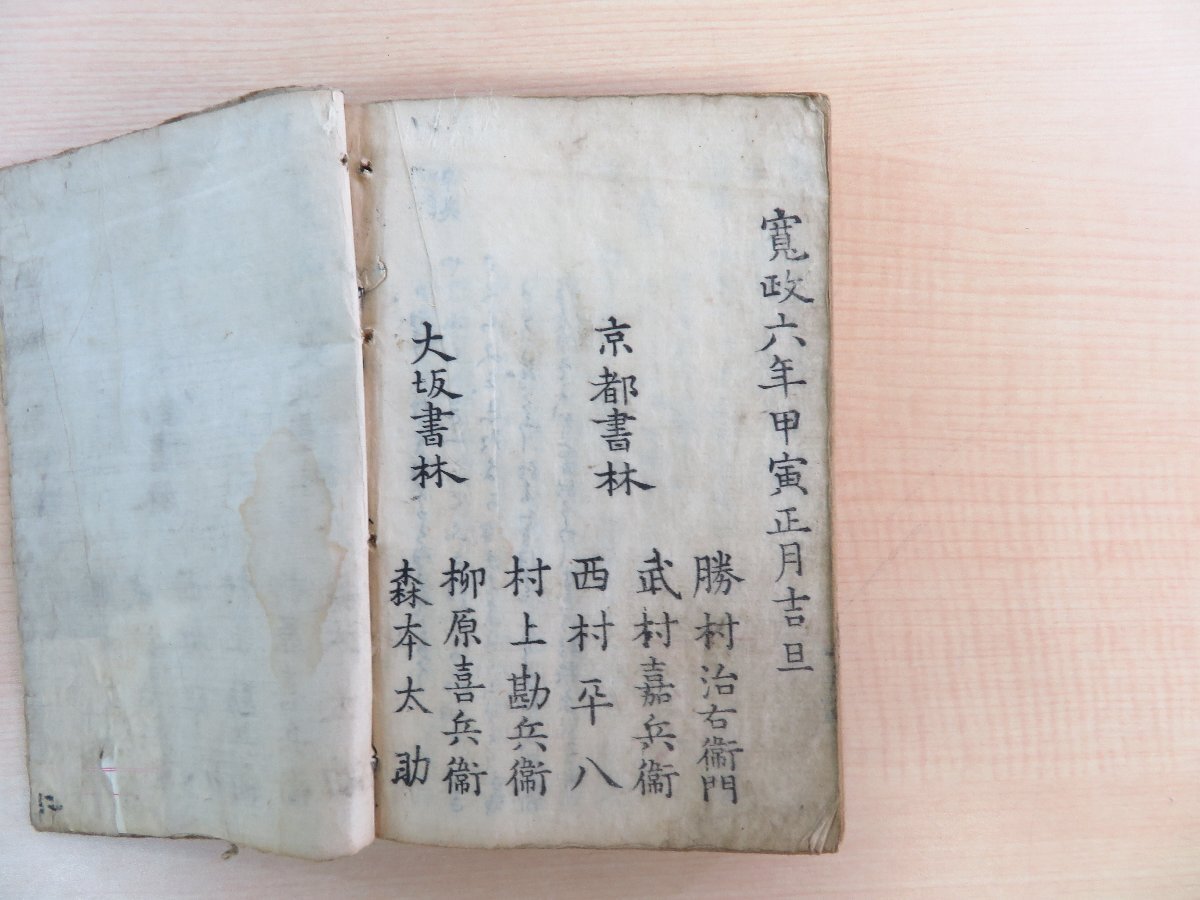 寛政六年甲寅正月吉旦
京都書林
勝村治右衞門
武村嘉兵衞
西村平八
村上勘兵衞
大坂書林
柳原喜兵衞
森本太助